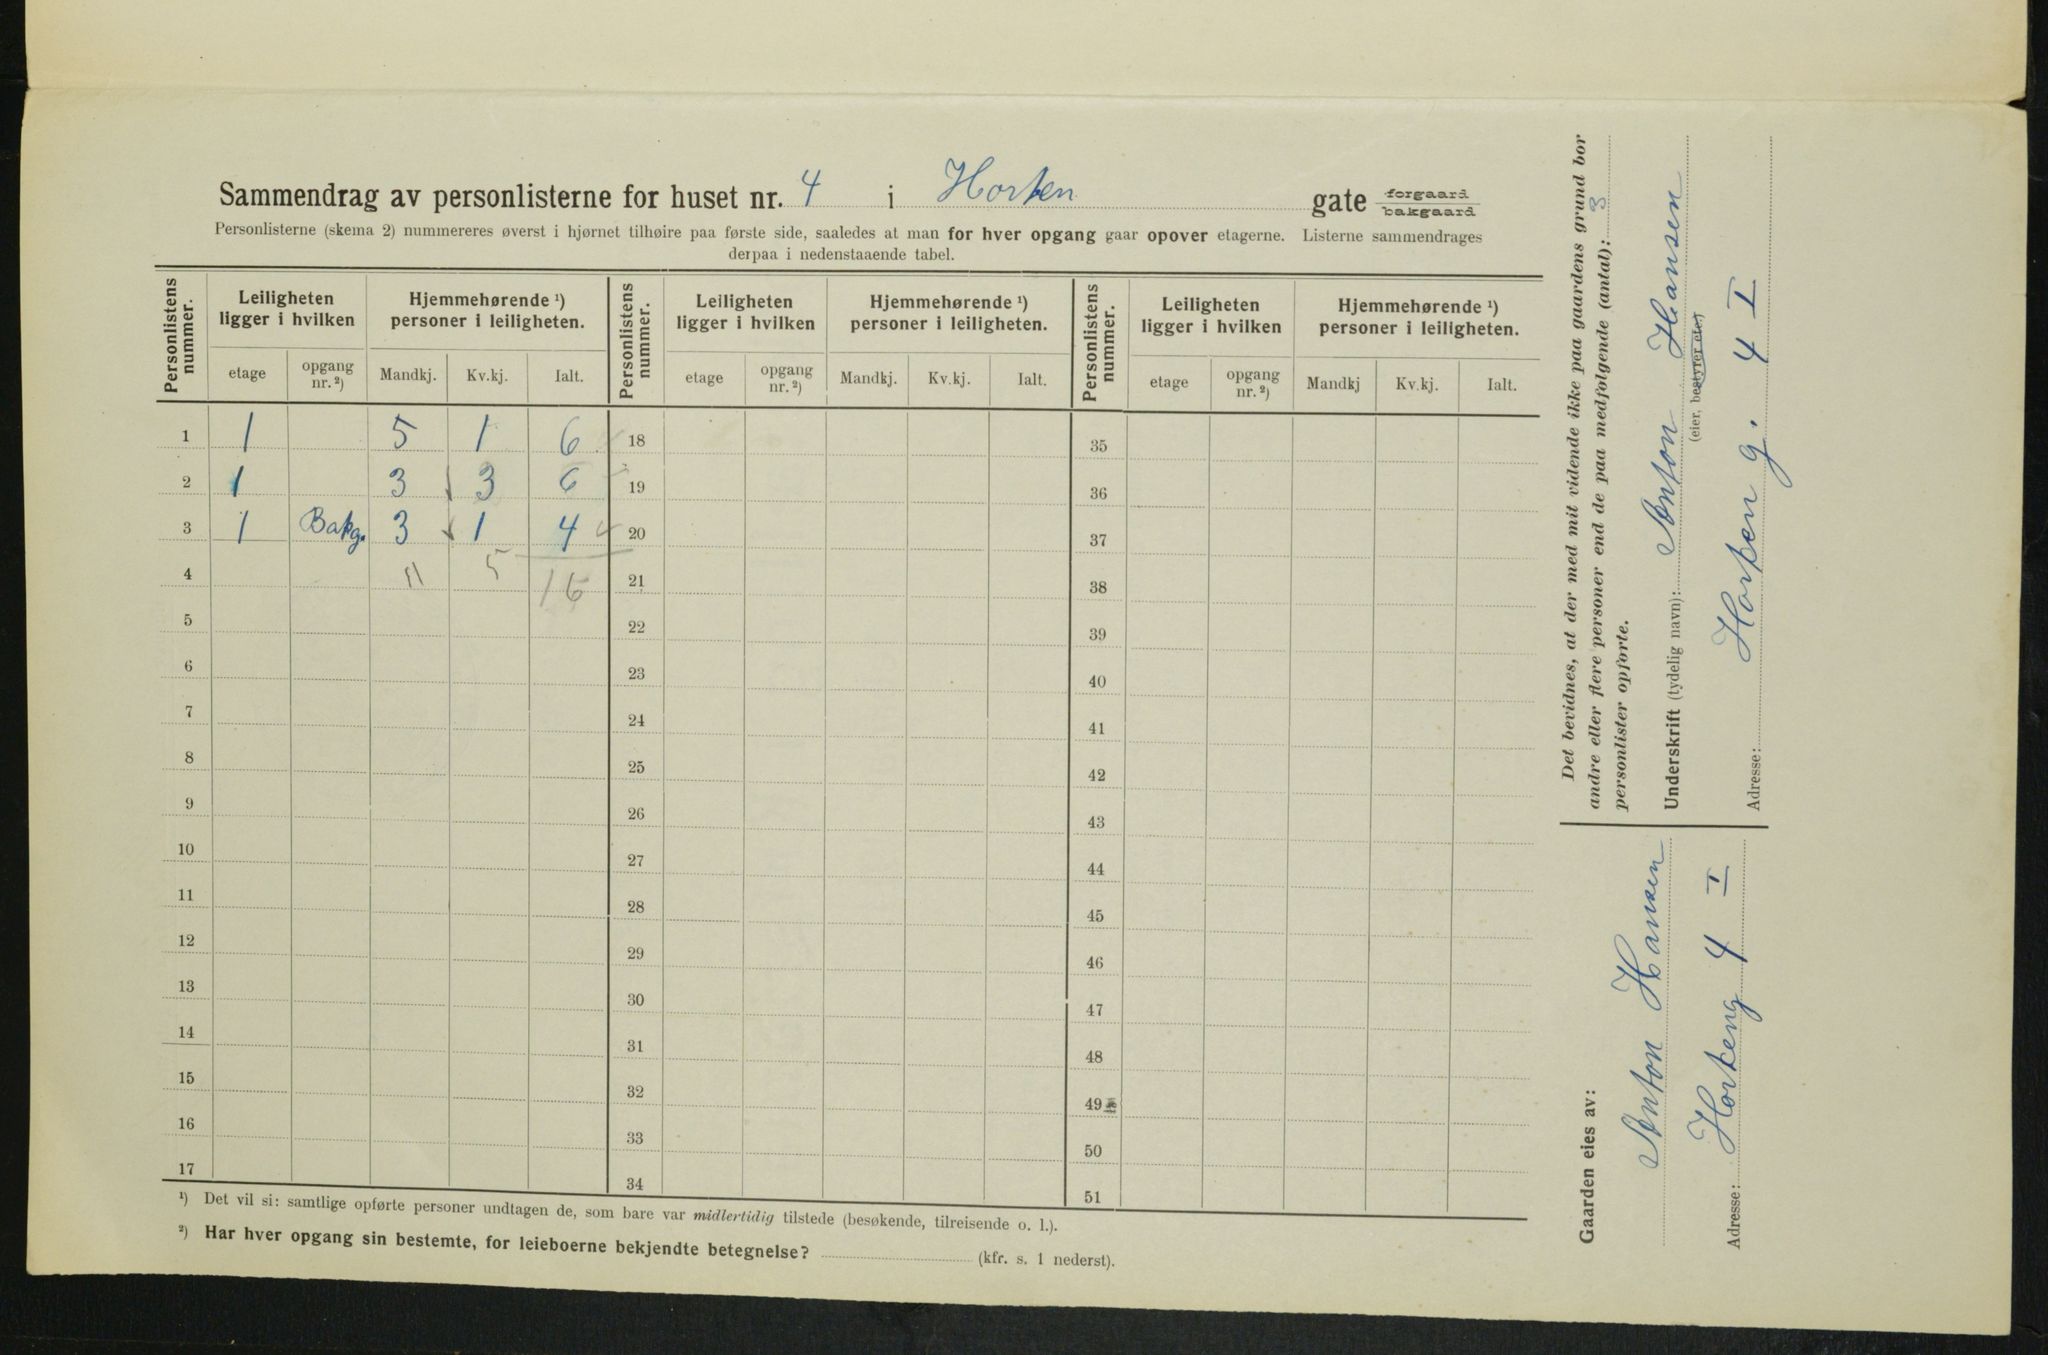 Sammendrag av personlisterne for huset nr. 4 i Horten gate forgaard bakgaard
Personlisterne (skema 2) nummereres øverst i hjørnet tilhøire paa første side, saaledes at man for hver opgang gaar opover etagerne. Listerne sammendrages
derpaa i nedenstaaende tabel.
Personlistens nummer. Leiligheten ligger i hvilken Hjemmehørende ¹) personer i leiligheten. Personlistens nummer. Leiligheten ligger i hvilken Hjemmehørende ¹) personer i leiligheten. Personlistens nummer. Leiligheten ligger i hvilken Hjemmehørende ¹) personer i leiligheten.
etage opgang nr. ²) Mandkj. Kv.kj. Ialt. etage opgang nr. ²) Mandkj. Kv.kj. Ialt. etage opgang nr. ²) Mandkj Kv.kj. Ialt.
1 1 5 1 6 18 35
2 1 3 3 6 19 36
3 1 Bakg. 3 1 4 20 37
4 11 5 16 21 38
5 22 39
6 23 40
7 24 41
8 25 42
9 26 43
10 27 44
11 28 45
12 29 46
13 30 47
14 31 48
15 32 49
16 33 50
17 34 51
¹) Det vil si: samtlige opførte personer undtagen de, som bare var midlertidig tilstede (besøkende, tilreisende o. l.).
²) Har hver opgang sin bestemte, for leieboerne bekjendte betegnelse? (kfr. s. 1 nederst).
Det bevidnes, at der med mit vidende ikke paa gaardens grund bor
andre eller flere personer end de paa medfølgende (antal): 3
personlister opførte.
Underskrift (tydelig navn): Anton Hansen
(eier, bestyrer etc.)
Adresse: Horten g. 4 I
Gaarden eies av:
Anton Hansen
Adresse: Horteng 4 I